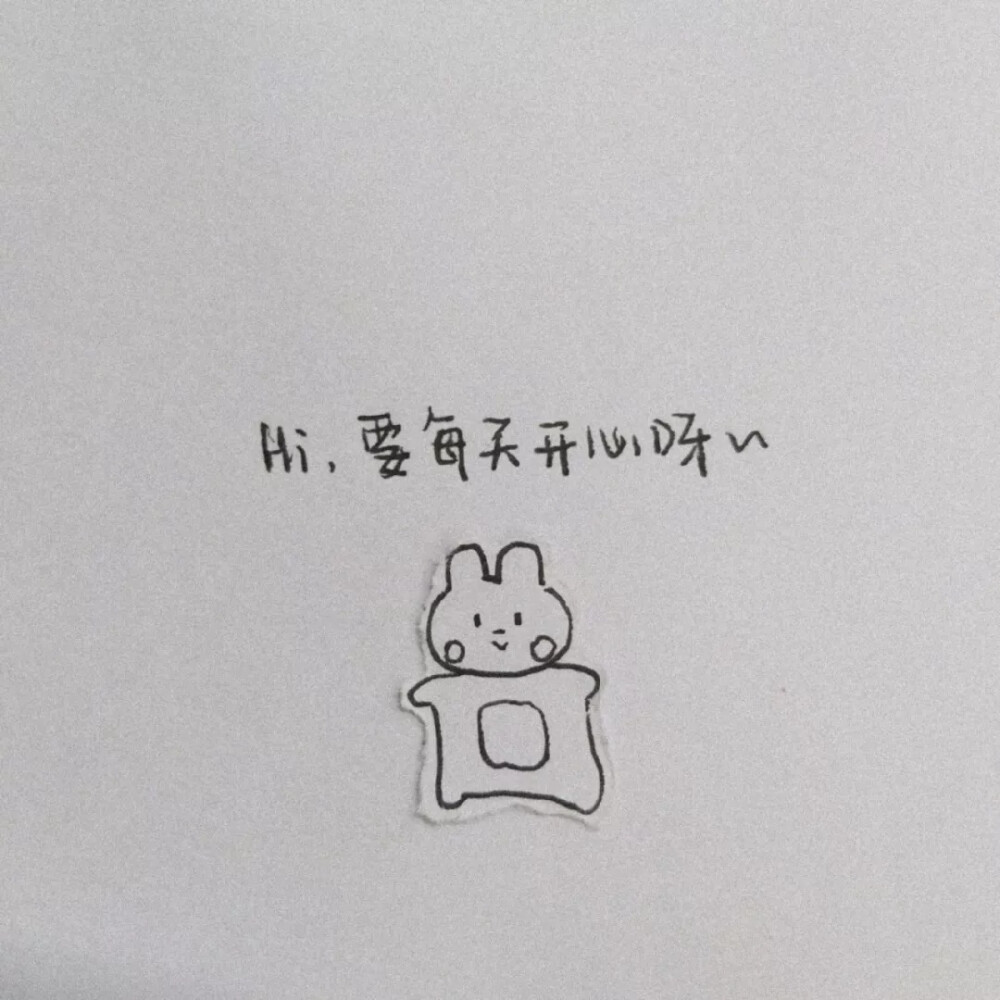 Hi,要每天开心呀~